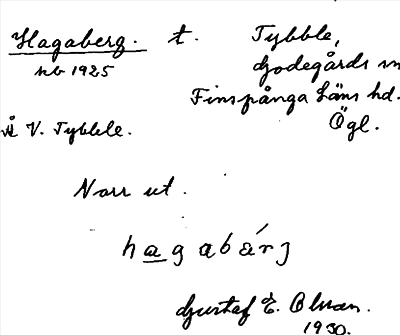 Hagaberg. t. Tybble,
nb 1925 Godegårds sn
Finspånga läns hd.
Å V. Tybble. Ögl.
Norr ut.
hagabärj
Gustaf E. Olson.
1930.